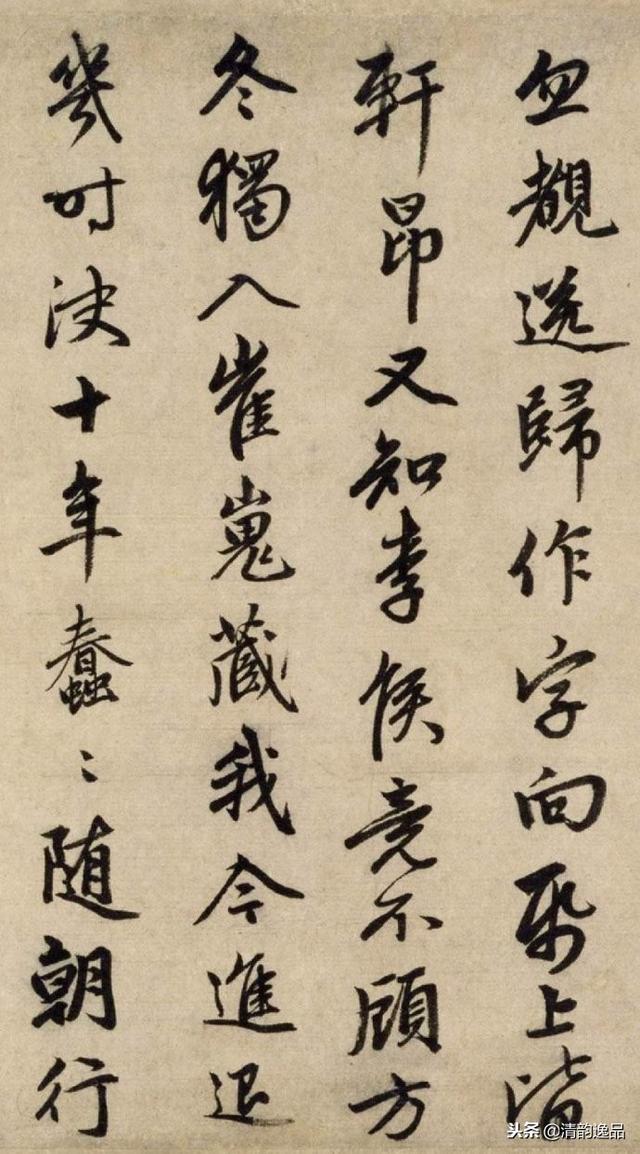 忽覩送歸作字向帋上皆
軒昂又知李侯竟不顧方
冬獨入崔嵬藏我今進退
幾时決十年蠢〻随朝行
头条@清韵逸品